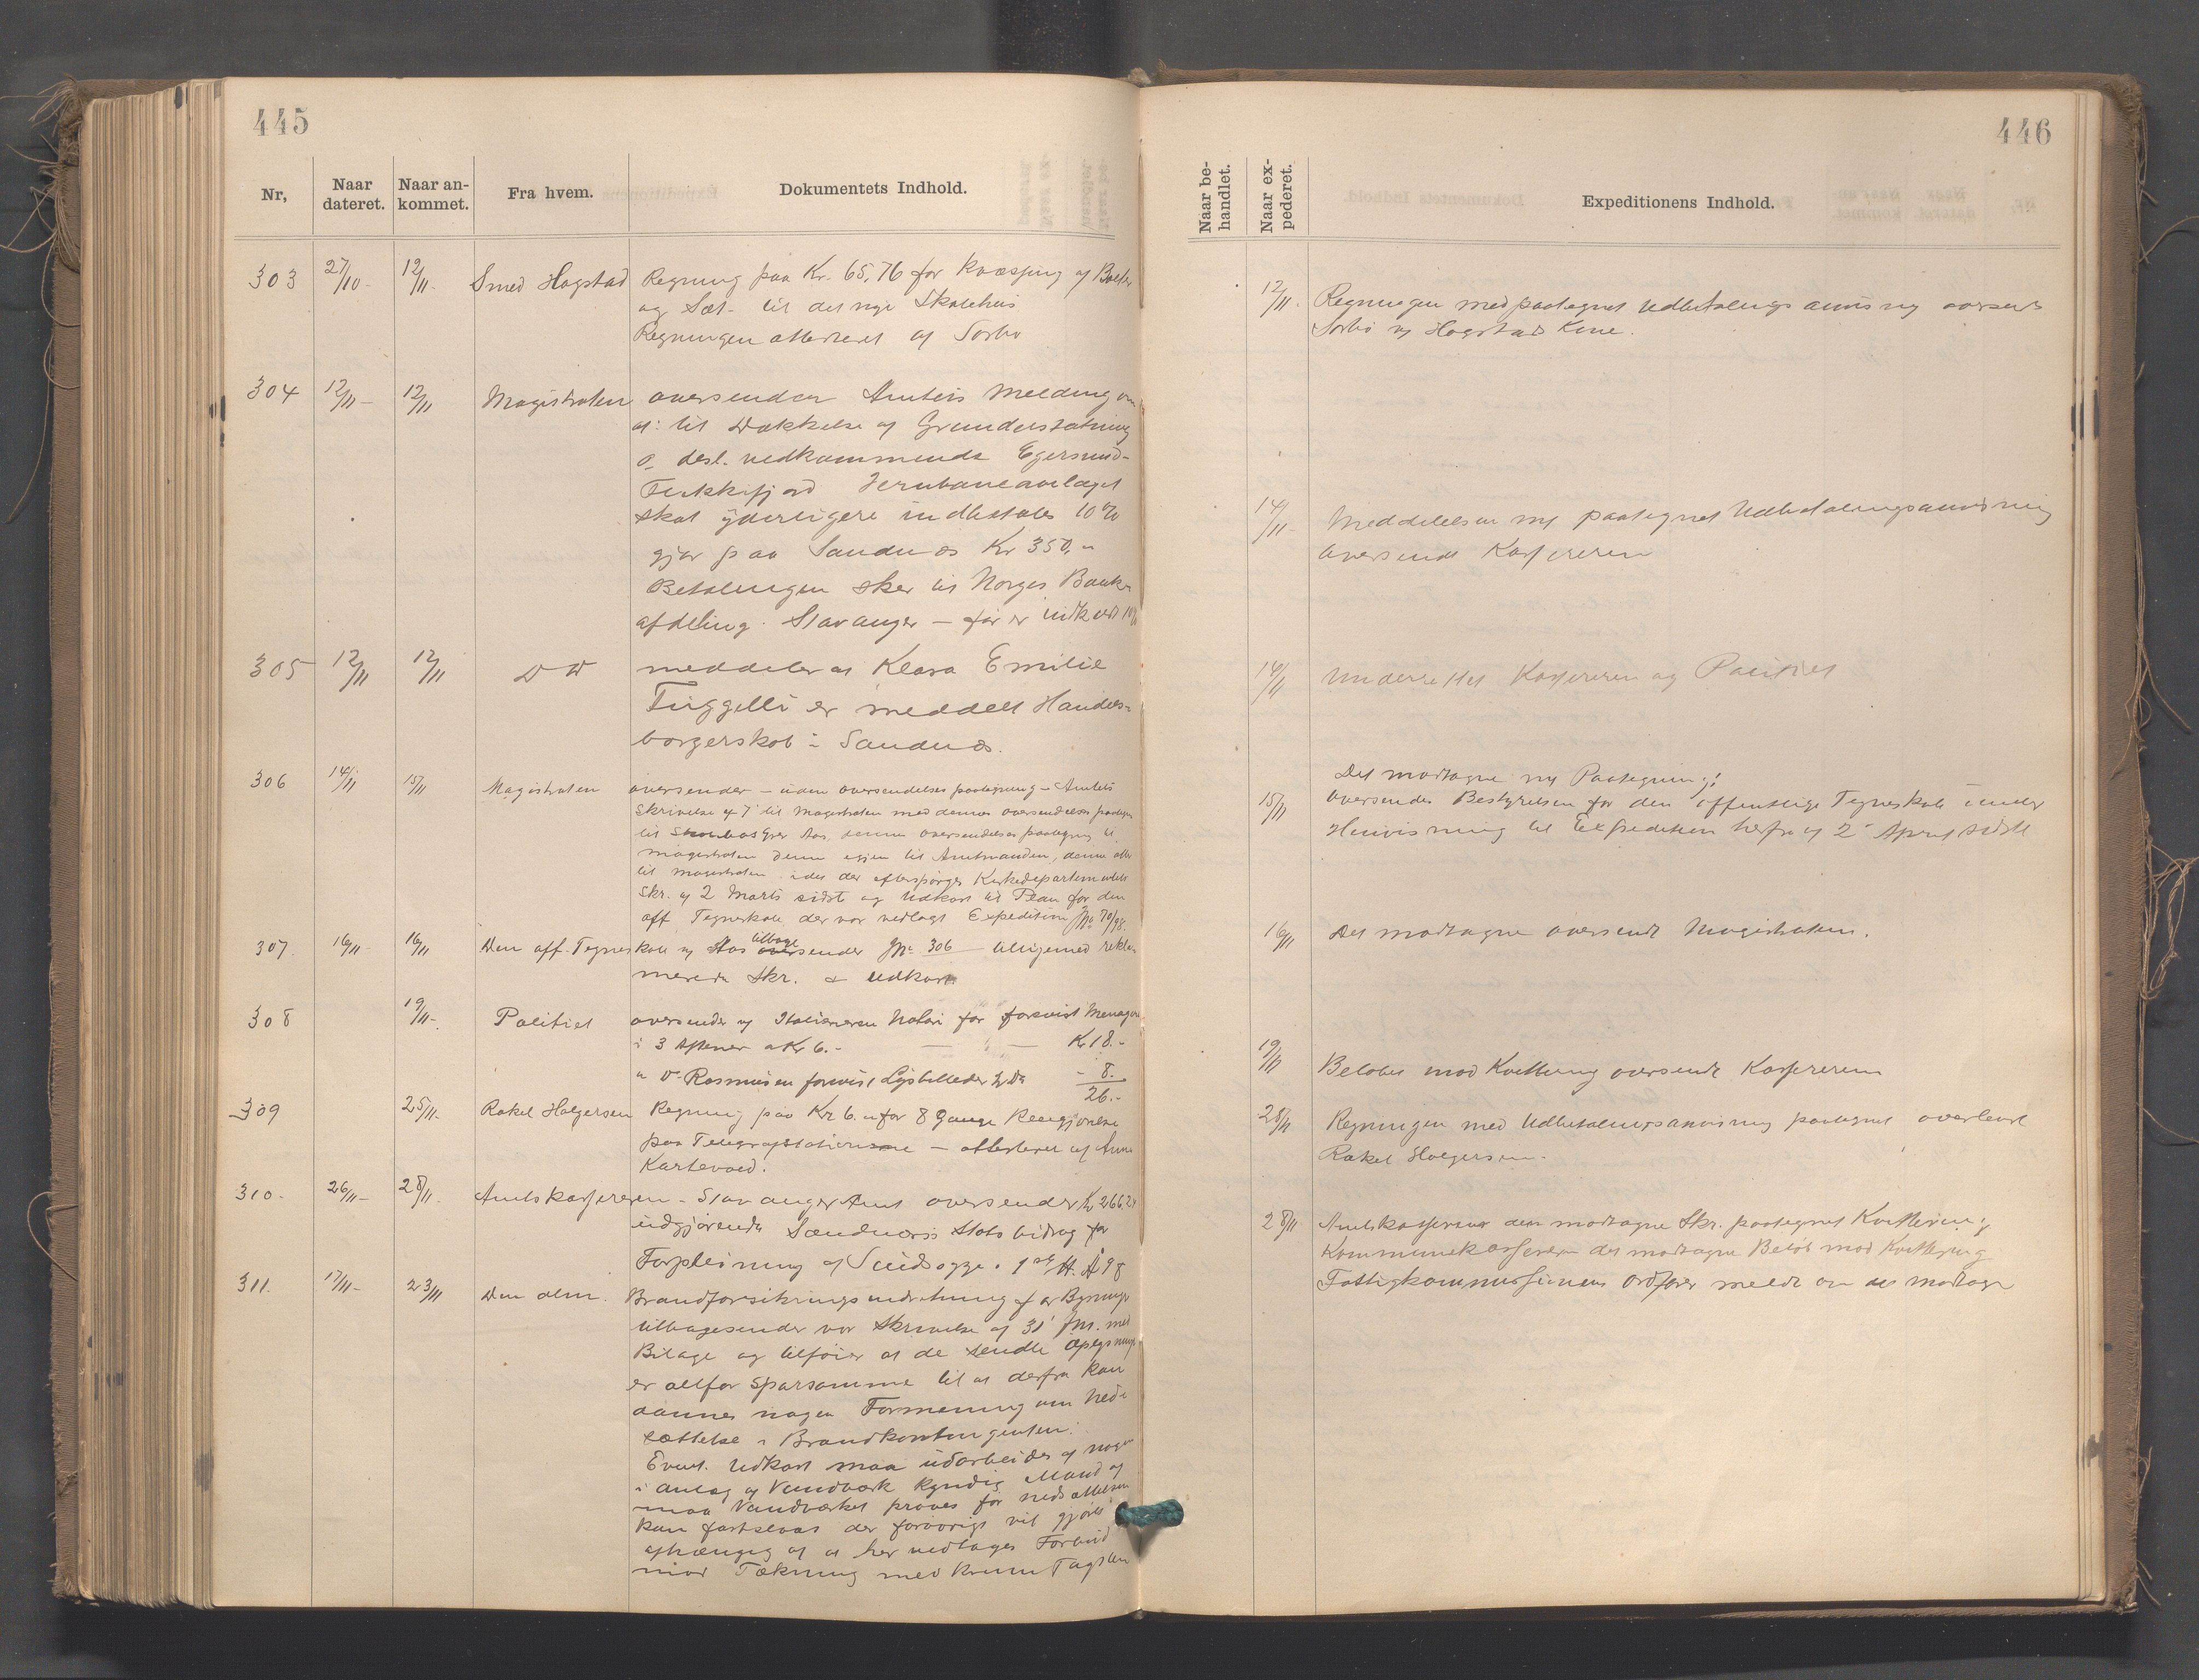 445
Nr,
Naar dateret.
Naar ankommet.
Fra hvem.
Dokumentets Indhold.
303 27/10- 12/11- Smed Hogstad Regning paa Kr. 65,76 for af Bolter
og til det nye Skolehus
Regningen attesteret af Sorbø
304 12/11- 12/11 Magistraten oversender Amtets Melding om
at til Dækkelse af Grunderstatning
o. desl. vedkommende Egersund-
Flekkefjord Jernbaneanlæget
skal yderligere indbetales 10%
gjør paa Sandnæs Kr 350,-
Betalingen sker til Norges Bank-
afdeling Stavanger — før er 10%
305 12/11 12/11 D D meddeler at Klara Emilie
Tiggelli er meddelt Handels-
borgerskab i Sandnæs.
306 14/11 15/11 Magistraten oversender – uden oversendelsespaategning – Amtets
Skrivelse af 7' til Magistraten med dennes oversendelses
til Aas, dennes oversendelsespaategning til
Magistraten denne igjen til Amtmanden, denne atter
til Magistraten idet der efterspørges Kirkedepartementets
Skr. af 2 Marts sidst og Udkast til Plan for den
off Tegneskole der var vedlagt Expedition Jno 70/98.
307 16/11- 16/11 Den off. Tegneskole v Aas tilbagesender Jno 306 — tilligemed rekla-
merede Skr. & Udkast
308 19/11- Politiet oversender af Italieneren Natari for forevist Menageri
i 3 Aftener a Kr 6.- — — Kr 18.-
" D- Rasmusen forevist Lysbilleder - 8.
26.-
309 25/11- Rakel Holgersen Regning paa Kr 6.- for 8 Gange Rengjørelse
paa Telegrafstationen — attesteret af Anna
Kartevold.
310- 26/11- 28/11- Amtskassereren - Stavanger Amt oversender Kr 266.24
udgjørende Sandnæs's Statsbidrag for
Forpleining af Sindssyge i 1ste H. Å 98
311. 17/11- 23/11 Den alm. Brandforsikringsindretning for Bygninger
tilbagesender vor Skrivelse af 31' m. med
Bilage og tilføier at de sendte
er altfor sparsomme til at derfra kan
dannes nogen Formening om Ned-
sættelse i Brandkontingenten.
Event. Udkast maa udarbeides af nogen
i Anlæg af Vandværk kyndig Mand og
maa Vandværket prøves før nedsættelsen
kan fastslaaes der forøvrigt vil gjøres
afhængig af at her vedtages Forbud
mod Tækning med krum Tagsten
446
Naar behandlet.
Naar expederet.
Expeditionens Indhold.
12/11. Regningen med paategnet Udbetalingsanvisning oversendt
Sorbø v Hogstads Kone.
14/11- Meddelelsen m/ paategnet Udbetalingsanvisning
oversendt Kassereren
14/11 Underrettet Kassereren og Politiet
Det modtagne m/ Paategning:
15/11 Oversendes Bestyrelsen for den offentlige Tegneskole under
Henvisning til Expedition herfra af 2' April sidstl
16/11 Det modtagne oversendt Magistraten.
19/11 Beløbet mod Kvittering oversendt Kassereren
28/11 Regningen med Udbetalingsanvisning paategnet overleveret
Rakel Holgersen.
28/11 Amtskassereren den modtagne Skr. paategnet Kvittering
Kommunekassereren det modtagne Beløb mod Kvittering
Fattigkommissionens Ordfører meldt om det modtagne